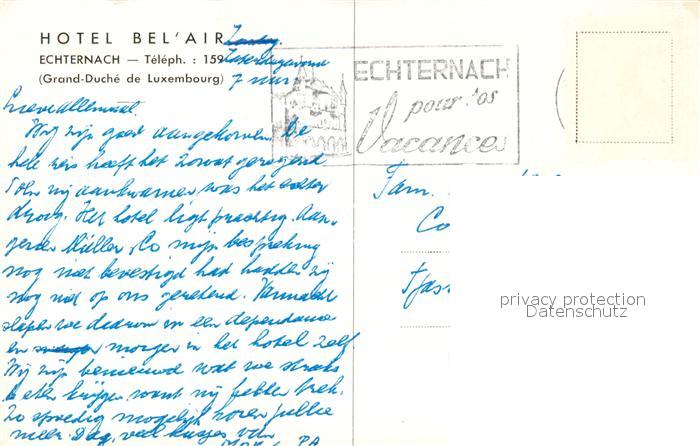 HOTEL BEL'AIR
ECHTERNACH — Téléph. : 159
(Grand-Duché de Luxembourg)
Zaterdagavond
7 uur
ECHTERNACH
pour vos
Vacances
Lieve allemaal.
Wij zijn goed aangekomen. De
hele reis heeft het zowat geregend
Toen wij aankwamen was het echter
droog. Het hotel ligt prachtig. Aan-
gezien Müller & Co mijn bespreking
nog niet bevestigd had hadden zij
nog niet op ons gerekend. Vannacht
slapen we daarom in een dependance
en morgen in het hotel zelf.
Wij zijn benieuwd wat we straks
te eten krijgen want wij hebben trek.
Zo spoedig mogelijk horen jullie
meer. Dag, veel kusjes van
PA
Fam.
Co
privacy protection
Datenschutz